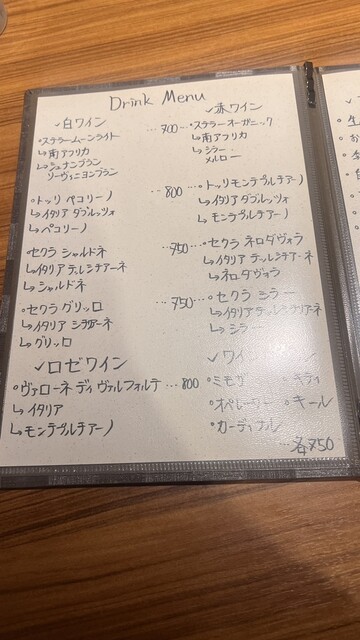 Drink Menu
✓白ワイン
○ステラームーンライト …700
↳南アフリカ
↳シュナンブラン
ソーヴィニヨンブラン
○トッリ ペコリーノ 800
↳イタリア ダブルッツォ
↳ペコリーノ
○セクラ シャルドネ 750
↳イタリア テッレシチアーネ
↳シャルドネ
○セクラ グリッロ 750
↳イタリア シチアーネ
↳グリッロ
✓ロゼワイン
○ヴァローネ ディ ヴァルフォルテ …800
↳イタリア
↳モンテプルチアーノ
✓赤ワイン
○ステラーオーガニック
↳南アフリカ
↳シラー
メルロー
○トッリモンテプルチアーノ
↳イタリア ダブルッツォ
↳モンテプルチアーノ
○セクラ ネロダヴォラ
↳イタリア テッレシチアーネ
↳ネロダヴォラ
○セクラ シラー
↳イタリアテッレシチリアーネ
↳シラー
✓ワイン
○ミモザ
○オペレーター ○キール
○カーディナル
…各750